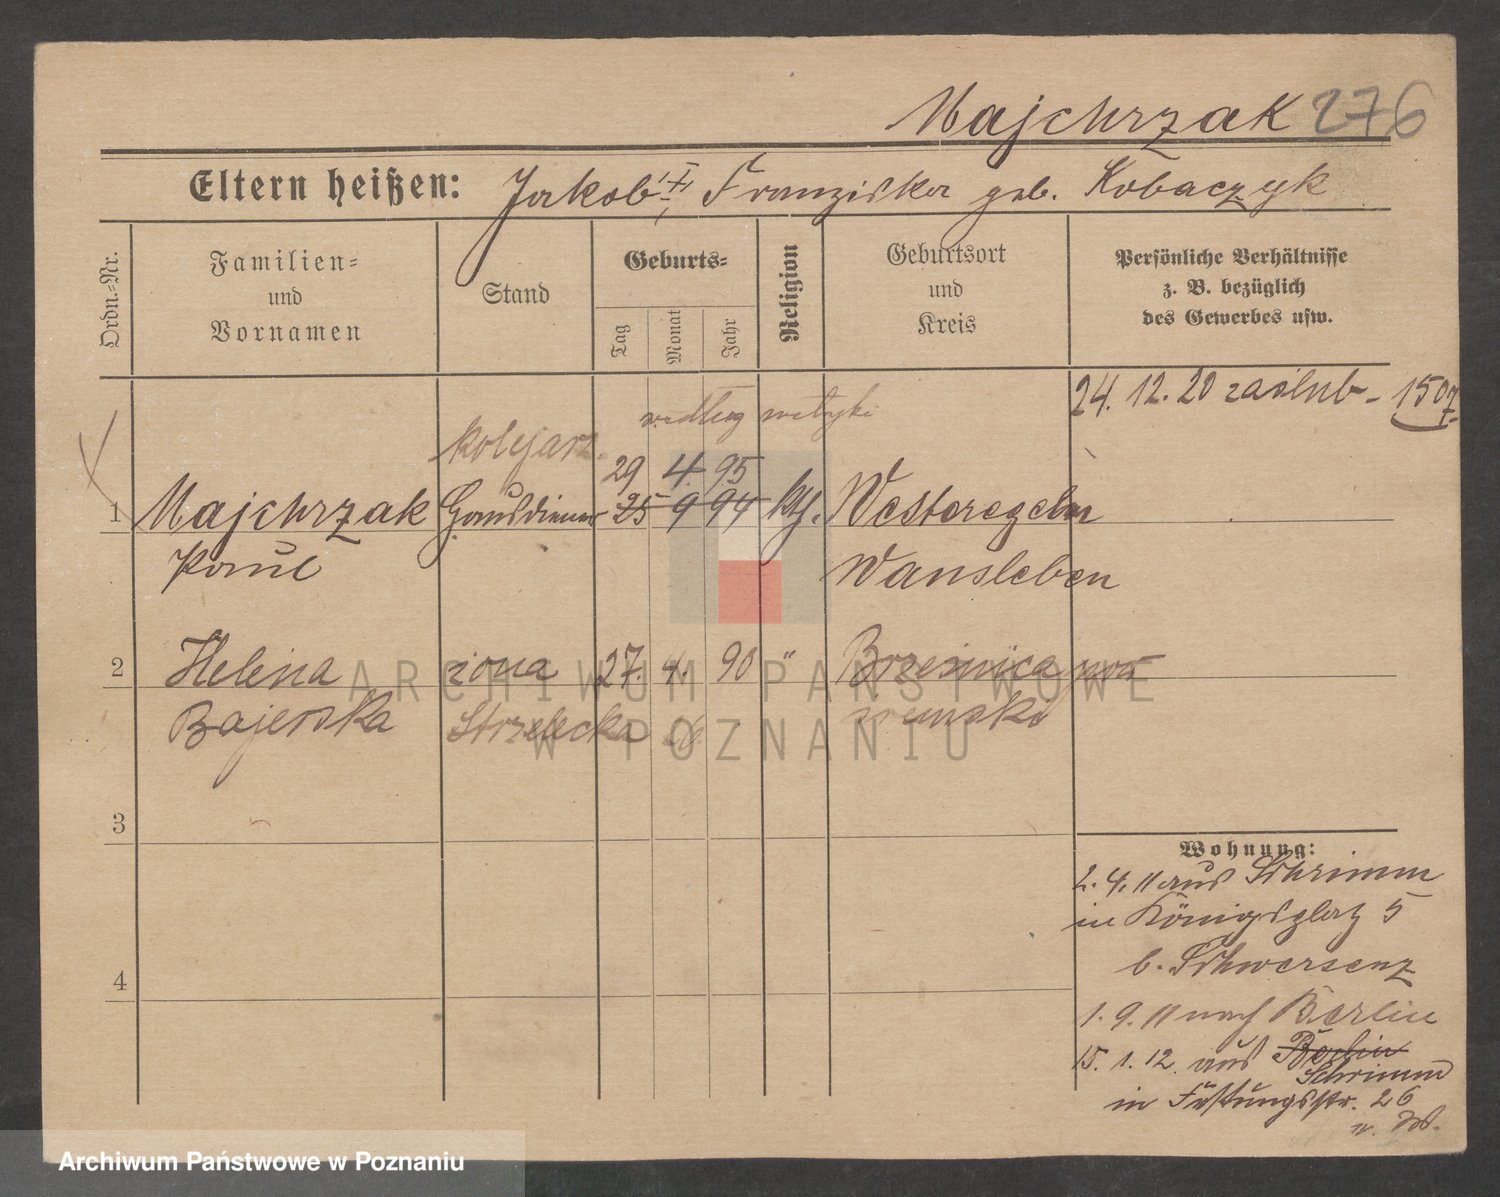 Majchrzak 276
Eltern heißen: Jakob, Franziska geb. Kobaczyk
Ordn.-Nr.
Familien-
und
Vornamen
Stand
Geburts-
Tag
Monat
Jahr
Religion
Geburtsort
und
Kreis
Persönliche Verhältnisse
z. B. bezüglich
des Gewerbes usw.
24. 12. 20 zaślub - 1507
według metryki
kolejarz
29 4. 95
1 Majchrzak Hausdiener 25 9 94 kth. Westeregeln
Paul Wansleben
2 Helena żona 27. 4. 90 " Brzeźnica
Bajerska Strzelecka śremski
3
4
Wohnung:
2. 4. 11 aus Schrimm
in Königsplatz 5
b. Schwersenz
1. 9. 11 nach Berlin
15. 1. 12. aus Berlin
Schrimm
in Festungsstr. 26
ARCHIWUM PAŃSTWOWE
W POZNANIU
Archiwum Państwowe w Poznaniu